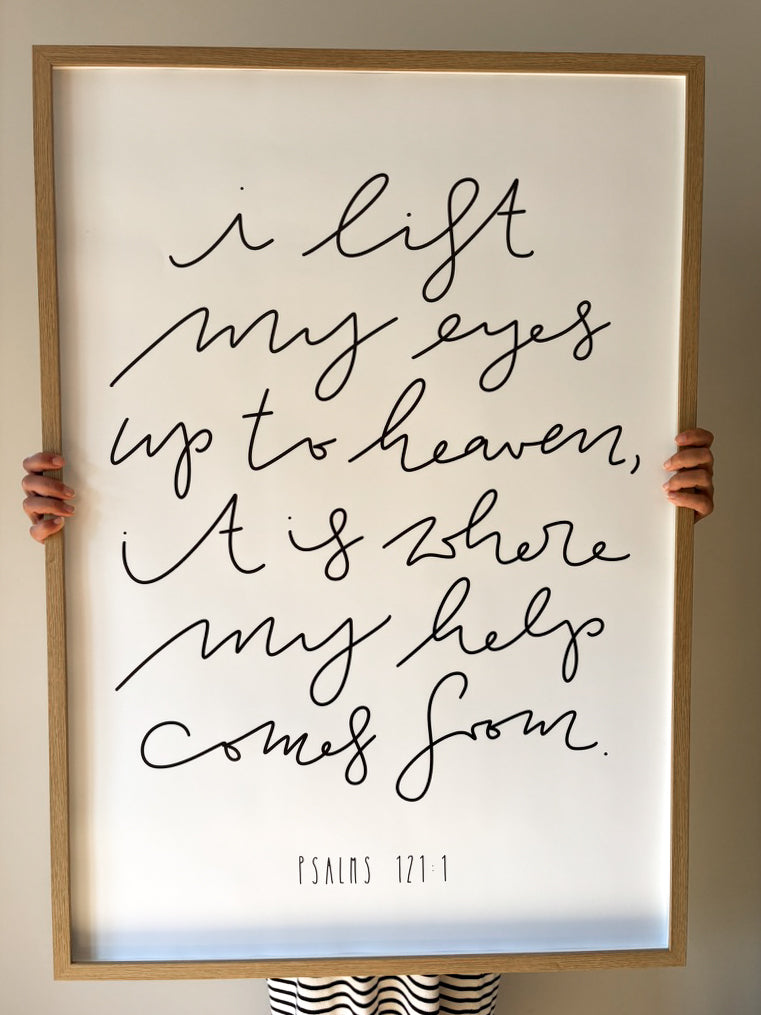 i lift
my eyes
up to heaven,
it is where
my help
comes from.
PSALMS 121:1